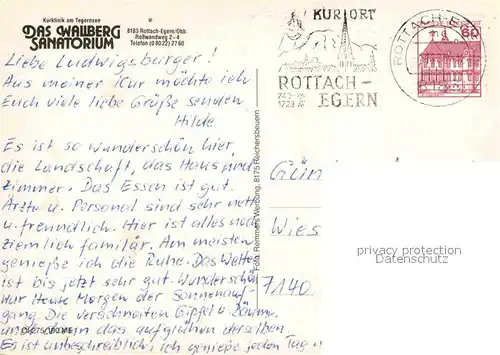 Kurklinik am Tegernsee
DAS WALLBERG
SANATORIUM
8183 Rottach-Egern/Obb.
Roßwandweg 2-4
Telefon (0 80 22) 27 60
KURORT
ROTTACH-
EGERN
ROTTACH-E
60
Liebe Ludwigsburger!
Aus meiner Kur möchte ich
Euch viele liebe Grüße senden
Hilde
Es ist so wunderschön hier,
die Landschaft, das Haus und
Zimmer. Das Essen ist gut.
Ärzte u. Personal sind sehr nett
u. freundlich. Hier ist alles noch
ziemlich familär. Am meisten
genieße ich die Ruhe. Das Wetter
ist bis jetzt sehr gut. Wunderschön
war Heute Morgen der Sonnenauf-
gang. Die verschneiten Gipfel u. Bäume
und dann das aufglühen derselben.
Es ist unbeschreiblich, ich genieße jeden Tag
Foto: Remmers Werbung, 8175 Reichersbeuern
Wies
7140
privacy protection